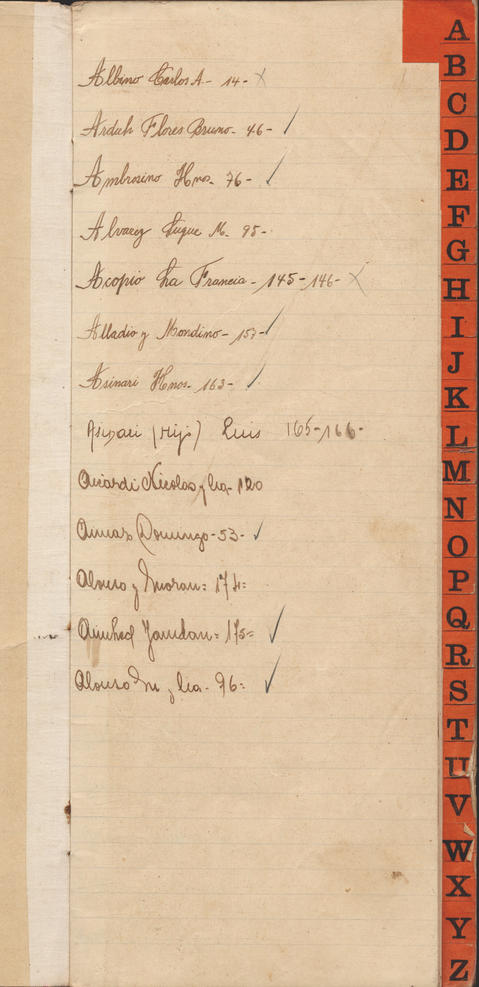 Albino Carlos A. - 14 - X
Arduh Flores Bruno - 46 - ✓
Ambrosino Hnos. 76 - ✓
Alvarez Luque M. 95 -
Acopio La Francia - 145 - 146 - X
Alladio y Mondino - 157 - ✓
Asinari Hnos. - 163 - ✓
Asinari (Hijo) Luis 165-166-
Aicardi Nicolas y Cia - 120
Domingo - 53 - ✓
Alonso y Moran = 174 =
175 = ✓
Alonso M y Cia - 96 = ✓
A
B
C
D
E
F
G
H
I
J
K
L
M
N
O
P
Q
R
S
T
U
V
W
X
Y
Z